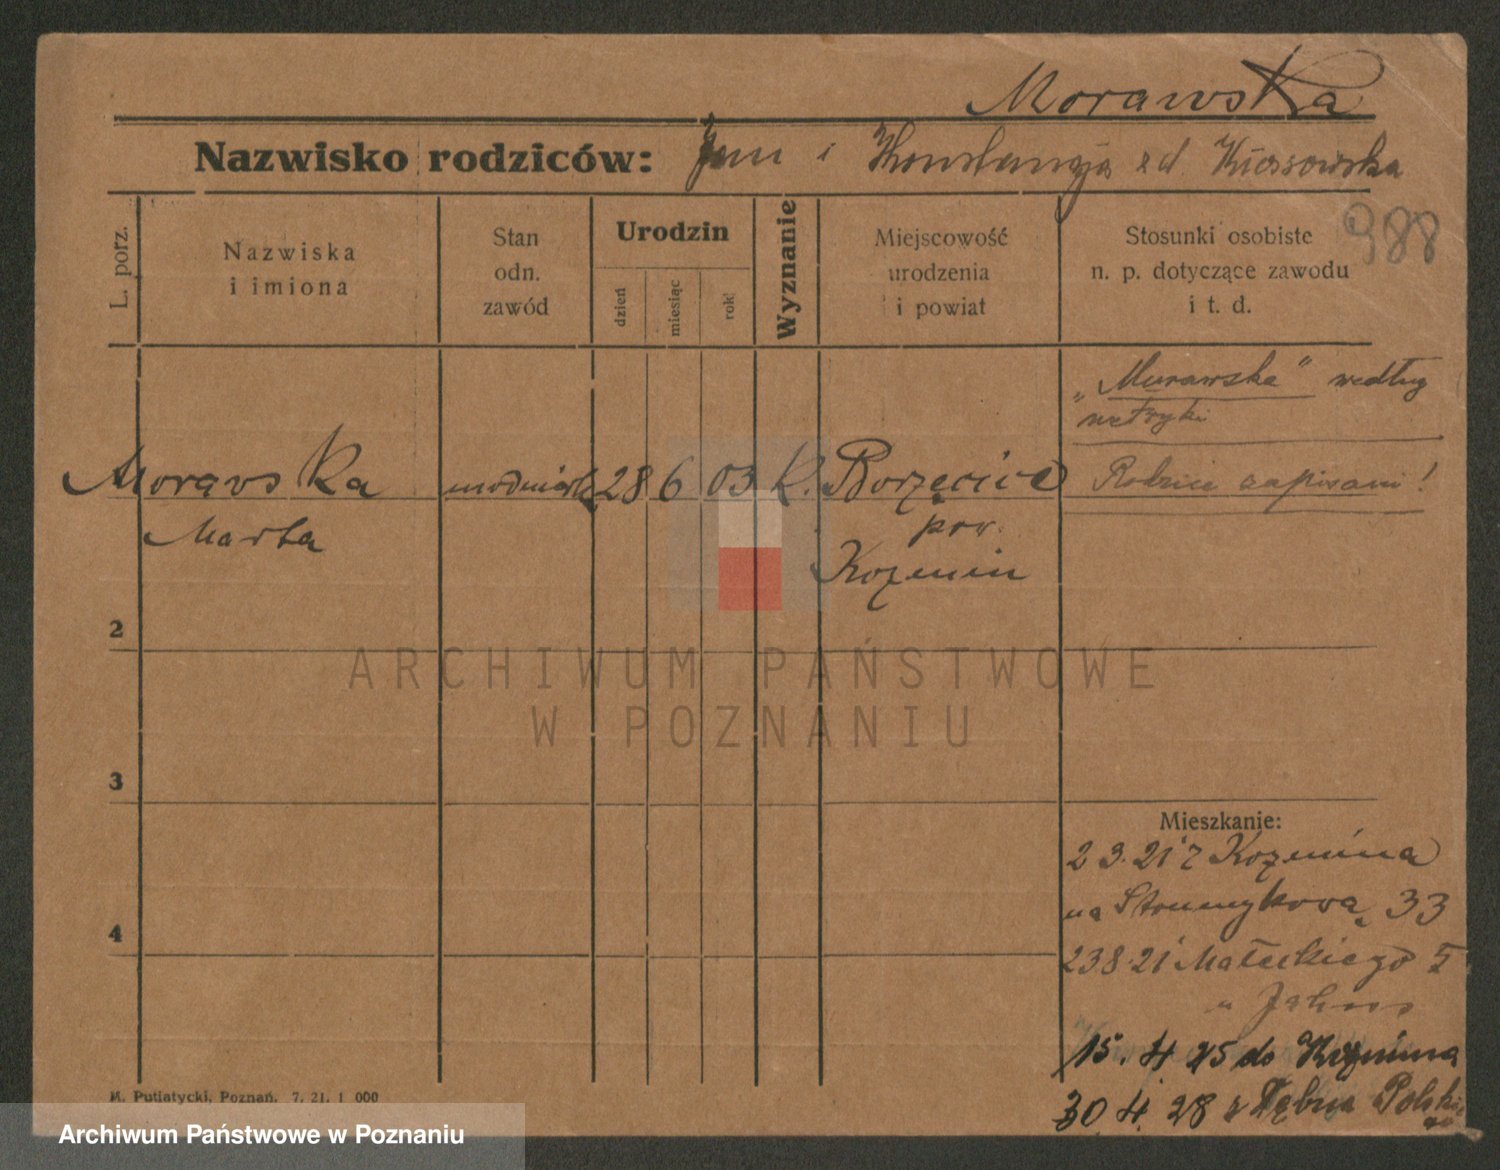 Morawska
Nazwisko rodziców: Jan i Konstancja z d.
988
L. porz.
Nazwiska
i imiona
Stan
odn.
zawód
Urodzin
dzień
miesiąc
rok
Wyznanie
Miejscowość
urodzenia
i powiat
Stosunki osobiste
n. p. dotyczące zawodu
i t. d.
"Murawska" według
metryki
Morawska modniarka 28 6 03 K. Borzęcice
Rodzice zapisani!
Marta
pow.
Kozmin
2
3
4
Mieszkanie:
2 3. 21 z Kozmina
na Strumykową 33
23 8. 21 Małeckiego
u
15. 4 25 do Kozmina
30. 4. 28 z Dębna Polski
ARCHIWUM PAŃSTWOWE
W POZNANIU
M. Putiatycki, Poznań. 7. 21. 1 000
Archiwum Państwowe w Poznaniu